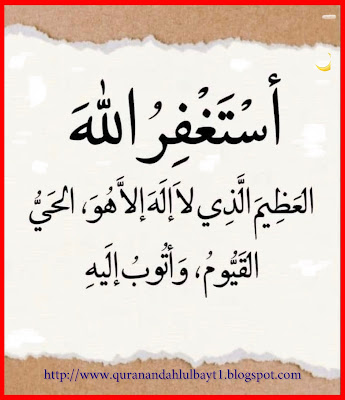 أَسْتَغْفِرُ اللهَ
العَظِيمَ الَّذِي لاَ إلَهَ إلاَّ هُوَ، الحَيُّ
القَيُّومُ، وَأَتُوبُ إلَيهِ
http://www.quranandahlulbayt1.blogspot.com